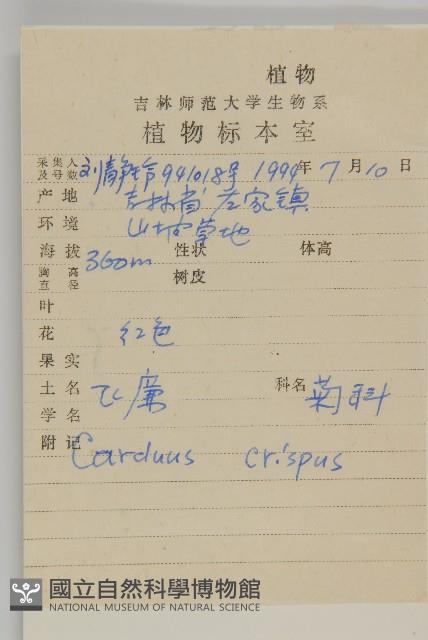 植物
吉林师范大学生物系
植物标本室
采集人及号数 刘静玲 941018号 1994年7月10日
产地 吉林省左家镇
环境 山坡草地
海拔 360m 性状 体高
胸高直径 树皮
叶
花 红色
果实
土名 飞廉 科名 菊科
学名
附记 Carduus crispus
國立自然科學博物館
NATIONAL MUSEUM OF NATURAL SCIENCE